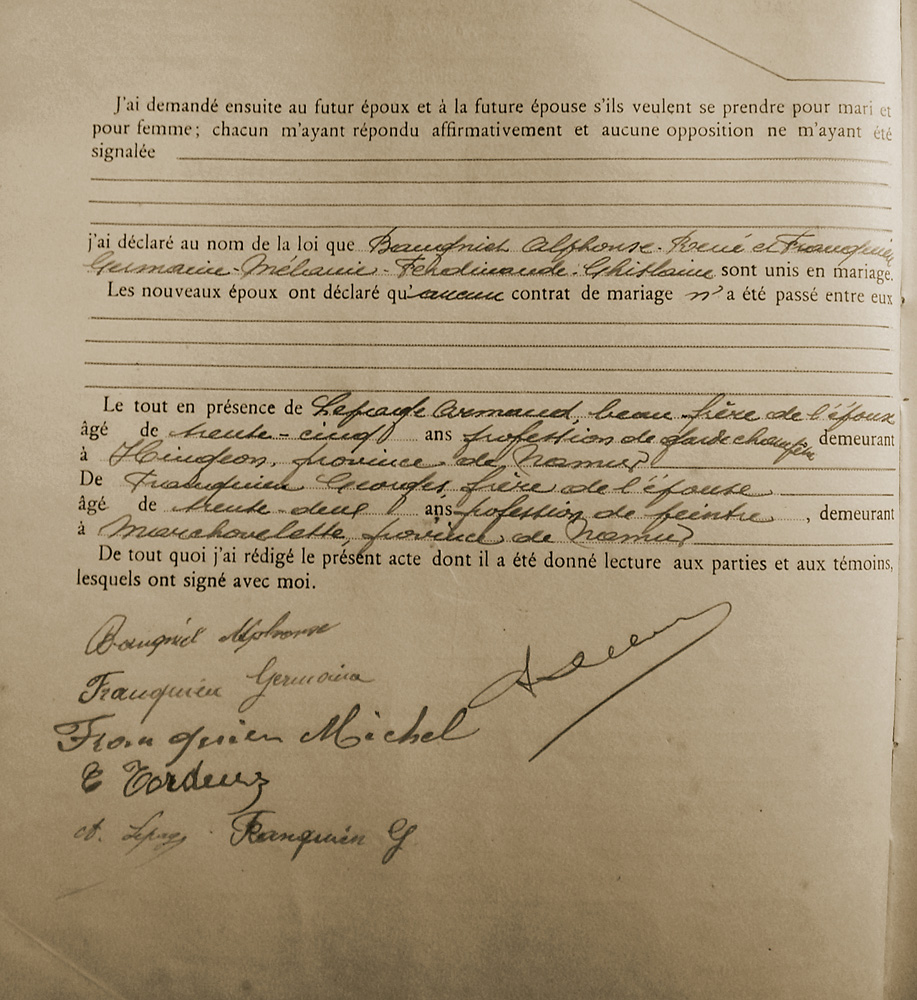 J'ai demandé ensuite au futur époux et à la future épouse s'ils veulent se prendre pour mari et
pour femme; chacun m'ayant répondu affirmativement et aucune opposition ne m'ayant été
signalée
j'ai déclaré au nom de la loi que Baugniet Alphonse-René et Franquien
Germaine-Mélanie-Ferdinande-Ghislaine sont unis en mariage.
Les nouveaux époux ont déclaré qu'aucun contrat de mariage n'a été passé entre eux
Le tout en présence de Armand, beau frère de l'époux
âgé de trente-cinq ans profession de garde champêtre demeurant
à Hingeon, province de Namur
De Franquien Georges, frère de l'épouse
âgé de trente-deux ans profession de peintre, demeurant
à Marchovelette, province de Namur
De tout quoi j'ai rédigé le présent acte dont il a été donné lecture aux parties et aux témoins,
lesquels ont signé avec moi.
Baugniet Alphonse
Franquien Germaine
Franquien Michel
E Tordeurs
A. Franquien G